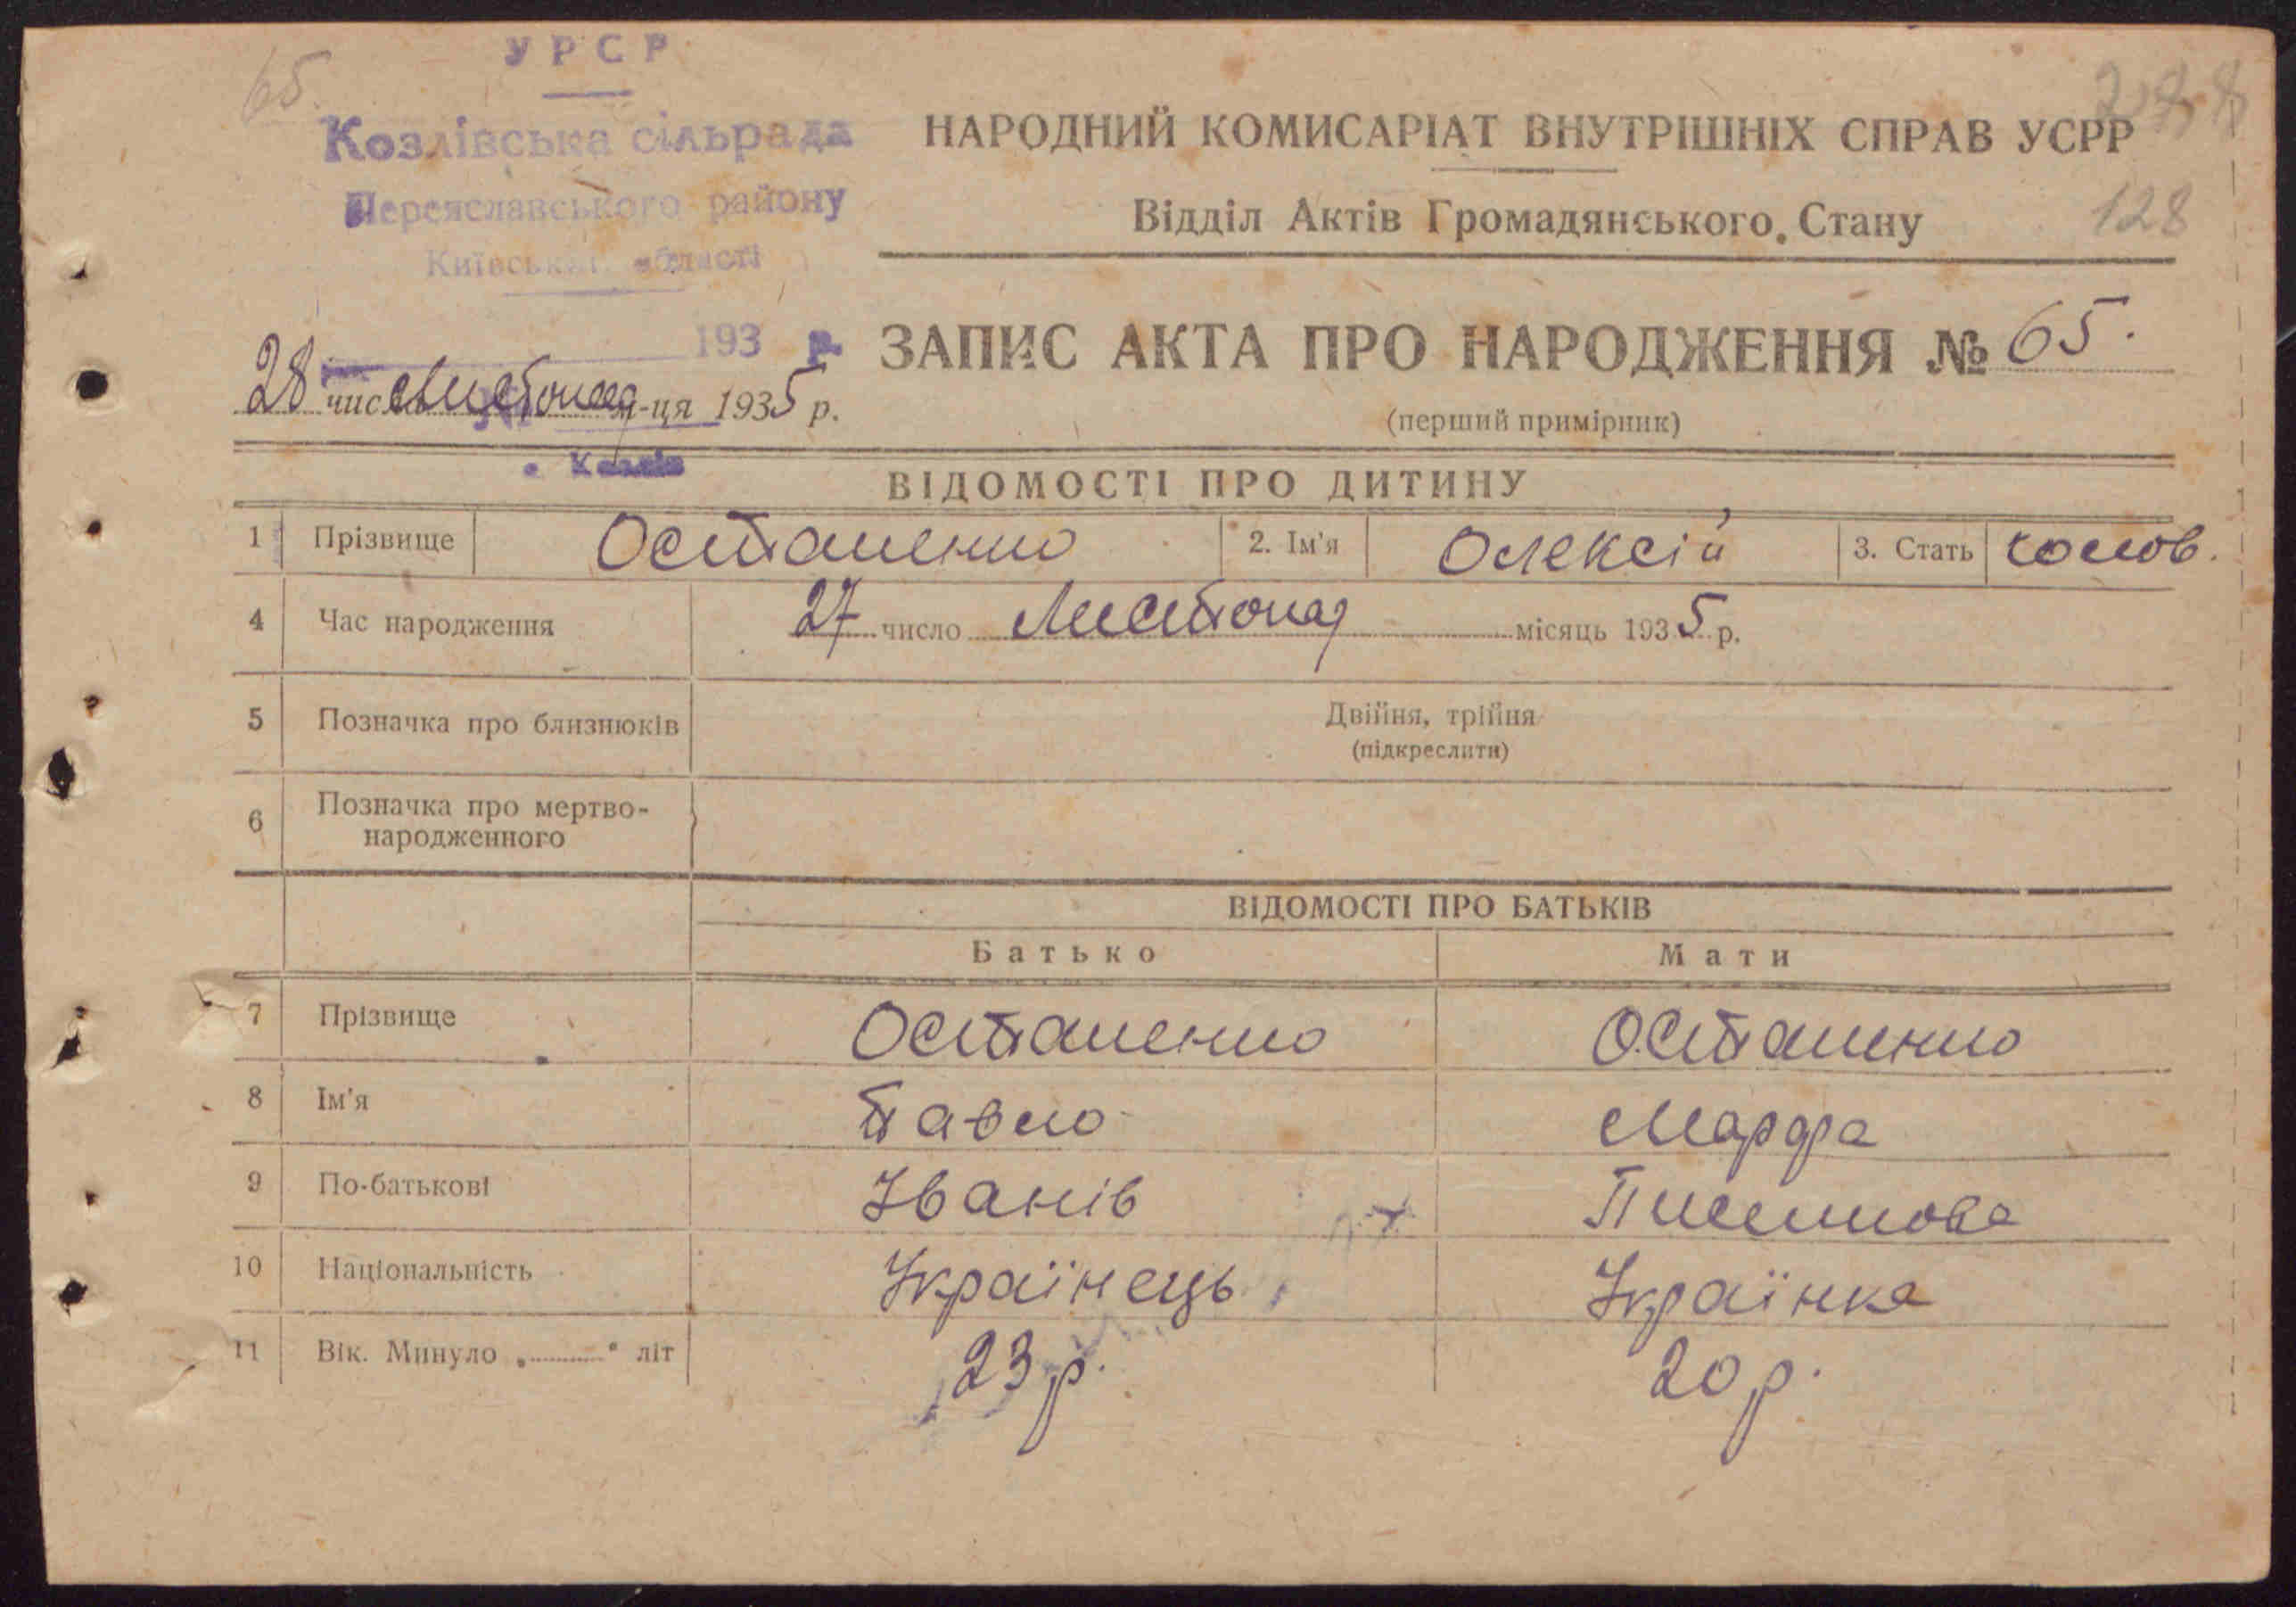 65.
УРСР
Козлівська сільрада
Переяславського району
Київської області
193 р.
с. Козлів
288
128
НАРОДНИЙ КОМИСАРІАТ ВНУТРІШНІХ СПРАВ УСРР
Відділ Актів Громадянського Стану
28 числ Листопад м-ця 1935 р.
ЗАПИС АКТА ПРО НАРОДЖЕННЯ № 65.
(перший примірник)
ВІДОМОСТІ ПРО ДИТИНУ
1 Прізвище Осташенко 2. Ім'я Олексій 3. Стать чолов.
4 Час народження 27 число Листопад місяць 1935 р.
5 Позначка про близнюків Двійня, трійня
(підкреслити)
6 Позначка про мертво-
народженного
ВІДОМОСТІ ПРО БАТЬКІВ
Батько Мати
7 Прізвище Осташенко Осташенко
8 Ім'я Павло Марфа
9 По-батькові Іванів
10 Національність Українець Українка
11 Вік. Минуло „ " літ 23 р. 20 р.